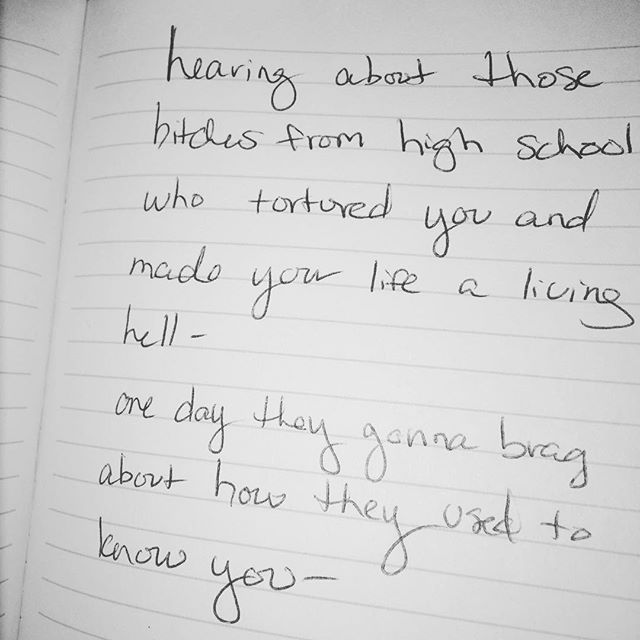 hearing about those
bitches from high school
who tortured you and
made your life a living
hell-
one day they gonna brag
about how they used to
know you-